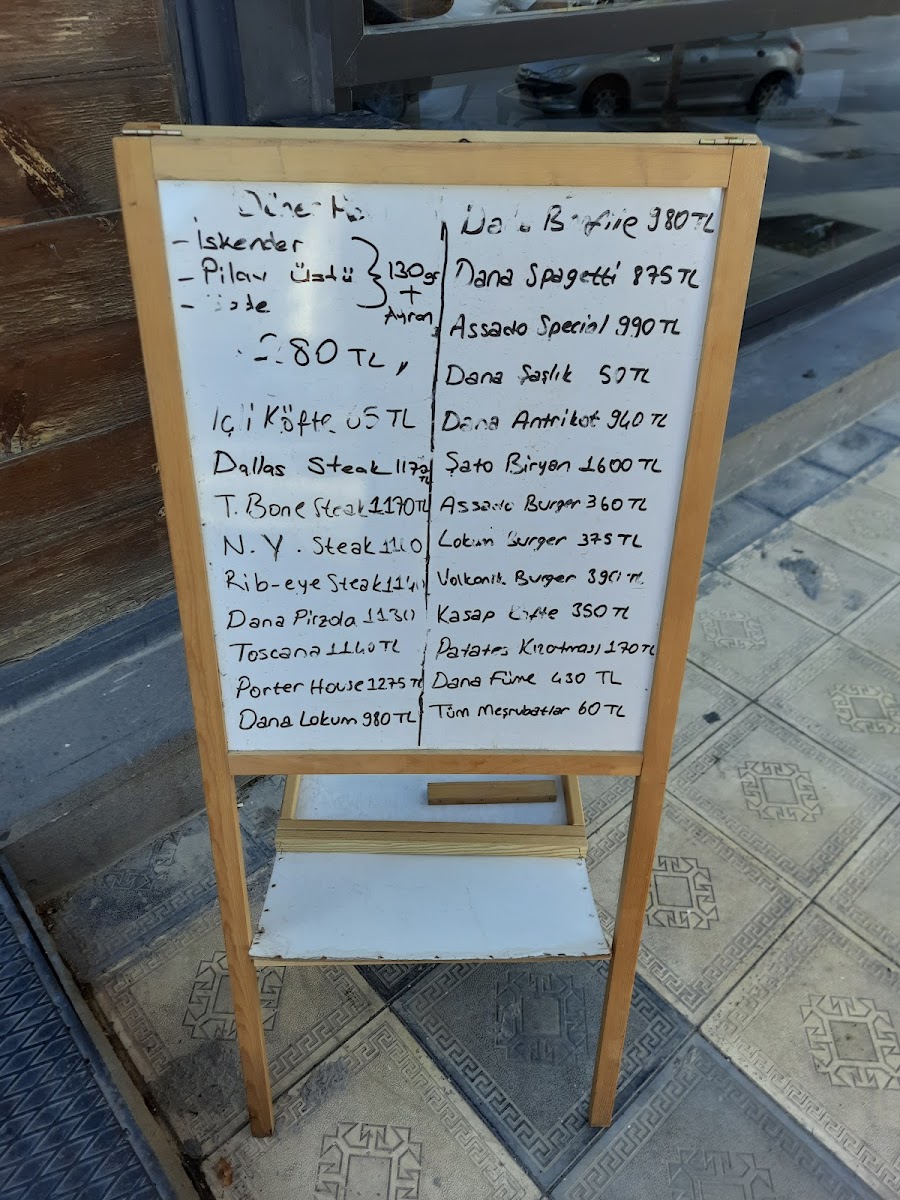 Döner
- İskender
- Pilav üstü
-
130gr
+
Ayran
280 TL
İçli Köfte 65 TL
Dallas Steak 1170 TL
T. Bone Steak 1170 TL
N.Y. Steak
Rib-eye Steak 1140
Dana Pirzola 1130
Toscana 1140 TL
Porter House 1275 TL
Dana Lokum 980 TL
Dana Bonfile 980 TL
Dana Spagetti 875 TL
Assado Special 990 TL
Dana Şaşlık
Dana Antrikot 940 TL
Şato Biryan 1600 TL
Assado Burger 360 TL
Lokum Burger 375 TL
Volkanik Burger 390 TL
Kasap Köfte 350 TL
Patates Kızatması 170 TL
Dana Füme 430 TL
Tüm Meşrubatlar 60 TL